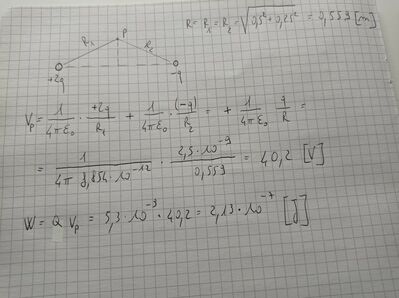 R = R₁ = R₂ = √(0,5² + 0,25²) = 0,559 [m]
R₁ P R₂
+2q -q
Vₚ = 1/(4πε₀) · +2q/R₁ + 1/(4πε₀) · (-q)/R₂ = + 1/(4πε₀) q/R =
= 1/(4π 8,854·10⁻¹²) · 2,5·10⁻⁹/0,559 = 40,2 [V]
W = Q Vₚ = 5,3·10⁻⁹ · 40,2 = 2,13·10⁻⁷ [J]